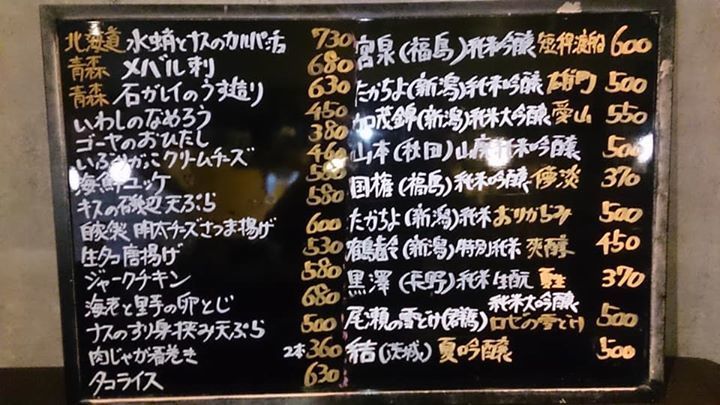 北海道 水蛸とナスのカルパ活 730
青森 メバル刺 680
青森 石ガレイのうす造り 630
いわしのなめろう 450
ゴーヤのおひたし 380
いぶりがっこクリームチーズ 460
海鮮ユッケ 580
キスの磯辺天ぷら 580
自家製 明太チーズさつま揚げ 600
生タコ唐揚げ 530
ジャークチキン 580
海老と野の卵とじ 680
ナスのすり身挟み天ぷら 500
肉じゃが春巻き 2本 360
タコライス 630
宮泉(福島)純米吟醸 短稈渡船 600
たかちよ(新潟)純米吟醸 500
加茂錦(新潟)純米大吟醸 愛山 550
山本(秋田)山廃純米吟醸 500
国権(福島)純米吟醸 370
たかちよ(新潟)純米 おりがらみ 500
鶴齢(新潟)特別純米 爽醇 450
黒澤(長野)純米生酛 夏生 370
尾瀬の雪どけ(群馬)純米大吟醸 ロゼの雪どけ 500
結(茨城)夏吟醸 500